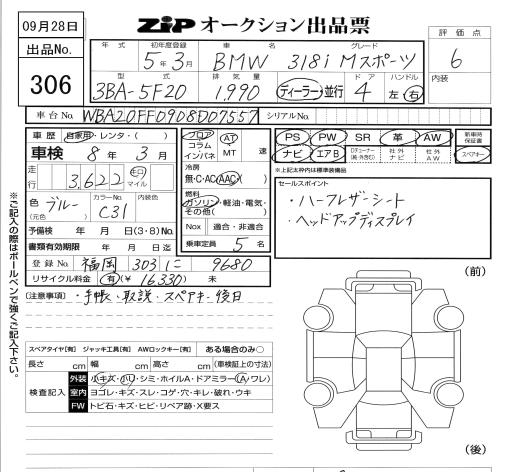 09月28日
ZiP オークション出品票
出品No. 306
年式 初年度登録 5年3月 車名 BMW グレード 318i Mスポーツ
評価点 6
内装
型式 3BA-5F20 排気量 1,990 ディーラー・並行 ドア 4 ハンドル 左 右
車台No. WBA20FF0908D07557 シリアルNo.
車歴 自家用・レンタ・( )
車検 8年3月
走行 3,622 キロ マイル
色 ブルー (元色) カラーNo. C31 内装色
予備検 年 月 日(3・8)No.
書類有効期限 年 月 日迄
登録No. 福岡 303 に 9680
リサイクル料金 有(¥ 16330) 未
フロア コラム インパネ AT MT 速
冷房 無・C・AC・AAC
燃料 ガソリン・軽油・電気・その他( )
Nox 適合・非適合
乗車定員 5 名
PS PW SR 革 AW 新車時保証書
ナビ エアB 社外ナビ 社外AW スペアキー
*上記太枠内は標準装備品
セールスポイント
・ハーフレザーシート
・ヘッドアップディスプレイ
(注意事項) ・手帳、取説、スペアキー後日
スペアタイヤ[有] ジャッキ工具[有] AWロックキー[有] ある場合のみ○
長さ cm 幅 cm 高さ cm (車検証上の寸法)
検査記入 外装 小キズ・小リ・シミ・ホイルA・ドアミラー(A・ワレ)
室内 ヨゴレ・キズ・スレ・コゲ・穴・キレ・破れ・ウキ
FW トビ石・キズ・ヒビ・リペア跡・X要ス
(前)
(後)
※ご記入の際はボールペンで強くご記入下さい。